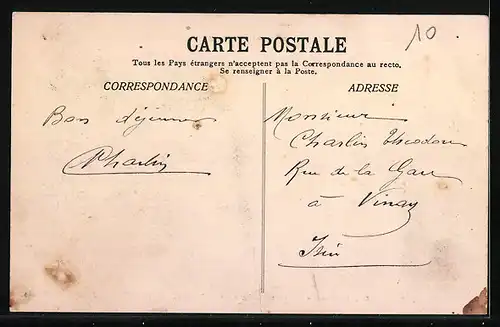 10
CARTE POSTALE
Tous les Pays étrangers n'acceptent pas la Correspondance au recto.
Se renseigner à la Poste.
CORRESPONDANCE
ADRESSE
Bon déjeuner
Charlin
Monsieur
Charlin Théodore
Rue de la Gare
à Vinay
Isère